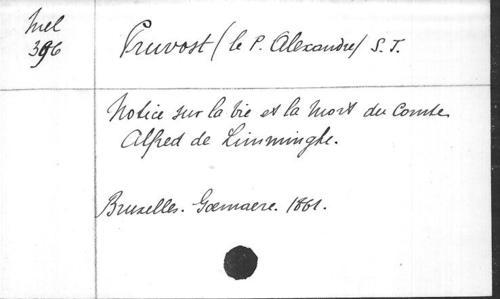 Mel
396
Pruvost (le P. Alexandre) S. J.
Notice sur la vie et la mort du Comte
Alfred de Limminghe.
Bruxelles. Goemaere. 1861.